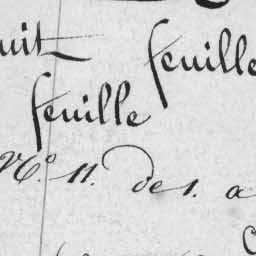 uit feuille
feuille
N.º 11. de 1. a